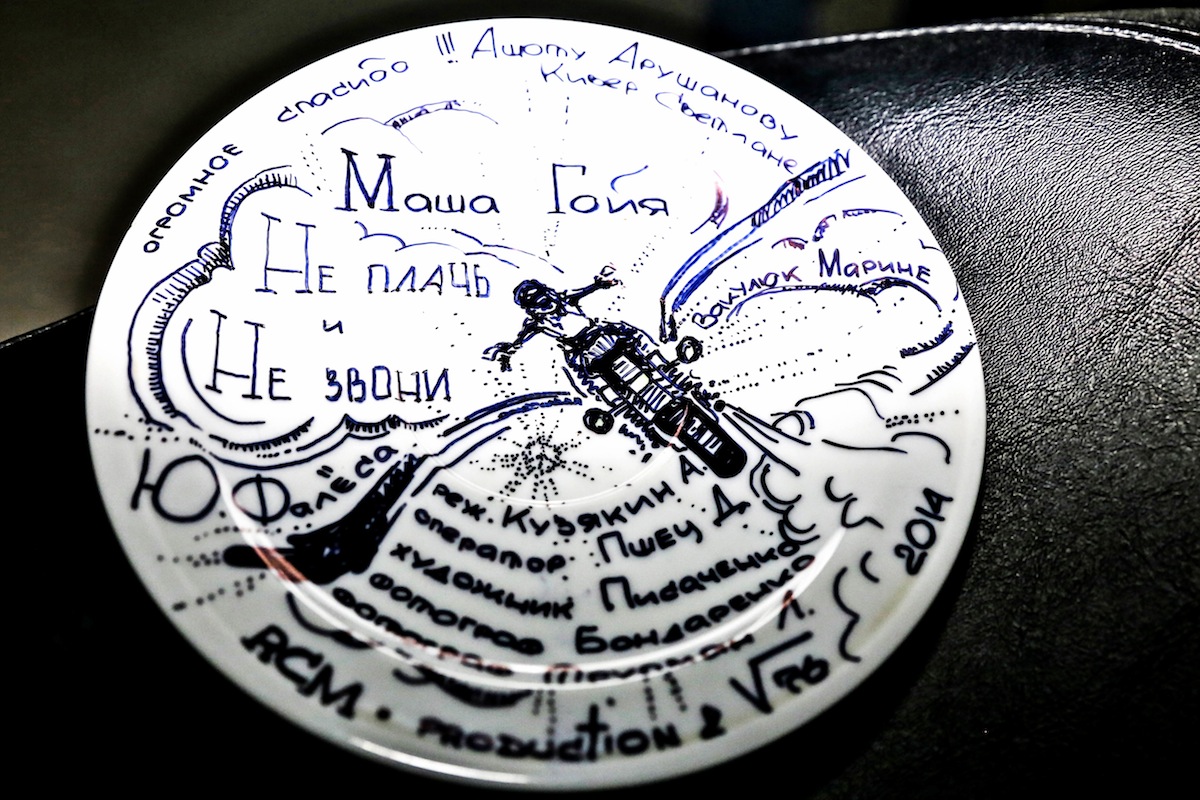 огромное спасибо !!! Ашоту Арушанову
Кивер Светлане
Маша Гойя
Не плачь
и
Не звони
Вакулюк Марине
Ю. Фалёса
реж. Кузякин А.
оператор Пшец Д.
художник Писаченко
фотограф Бондаренко
фотограф Л.
RCM • PRODUCTION & √76
2014